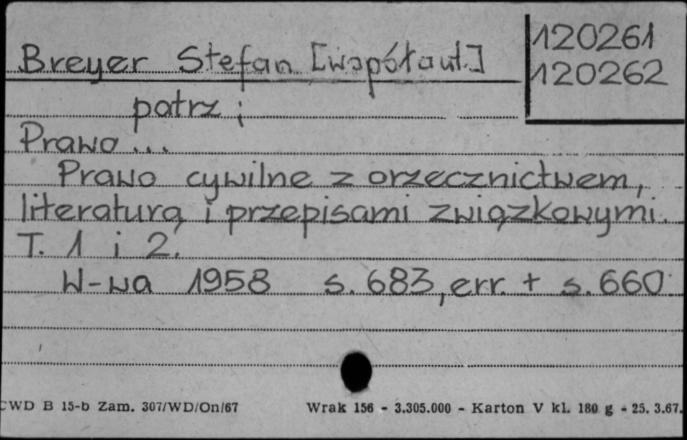 120261
Breyer Stefan [współaut.]
120262
patrz:
Prawo...
Prawo cywilne z orzecznictwem,
literaturą i przepisami związkowymi.
T. 1 i 2.
W-wa 1958 s. 683, err. + s. 660
CWD B 15-b Zam. 307/WD/On/67 Wrak 156 - 3.305.000 - Karton V kl. 180 g - 25. 3.67.